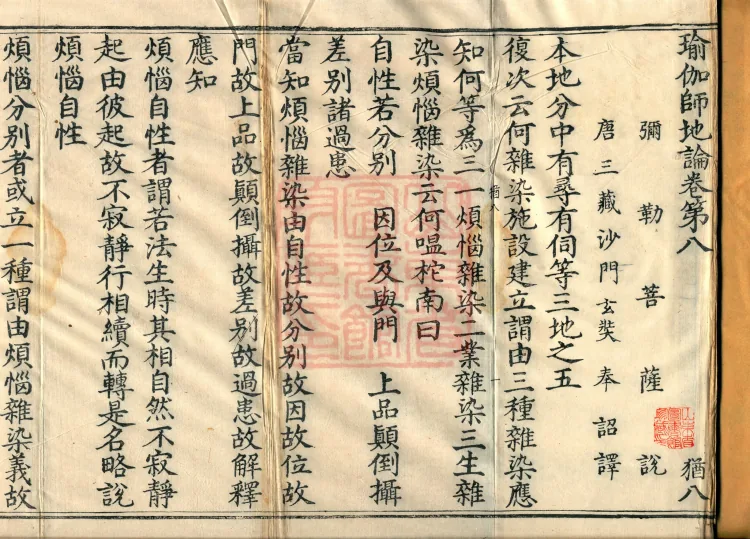 瑜伽師地論卷第八
彌勒菩薩說 猶八
唐三藏沙門玄奘奉詔譯
本地分中有尋有伺等三地之五
復次云何雜染施設建立謂由三種雜染應
猶八 一
知何等為三一煩惱雜染二業雜染三生雜
染煩惱雜染云何嗢柁南曰
自性若分別 因位及與門 上品顛倒攝
差別諸過患
當知煩惱雜染由自性故分別故因故位故
門故上品故顛倒攝故差別故過患故解釋
應知
煩惱自性者謂若法生時其相自然不寂靜
起由彼起故不寂靜行相續而轉是名略說
煩惱自性
煩惱分別者或立一種謂由煩惱雜染義故